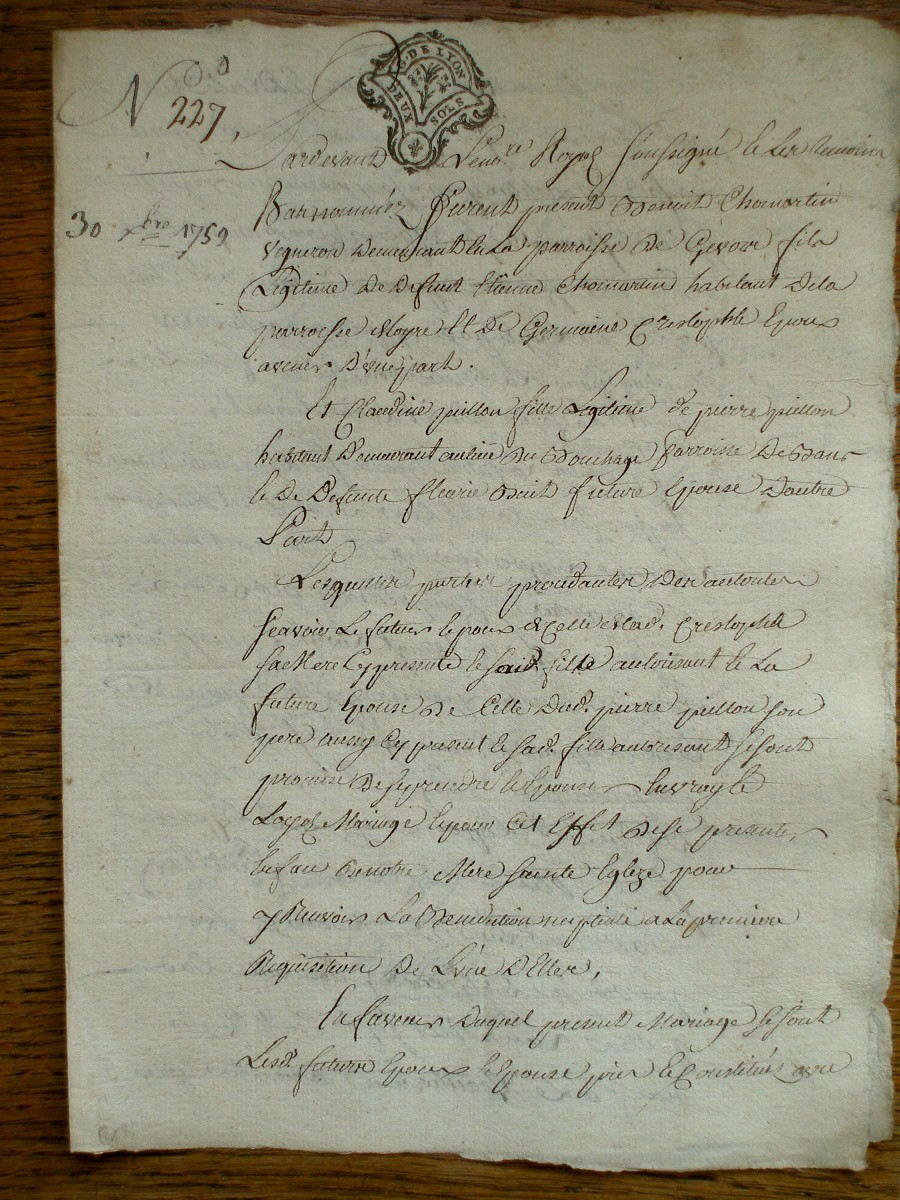 G. DE LYON
DEUX SOLS
N° 227,
30 xbre 1759
Pardevant Le no.re Royal soussigné et les temoins
Bas nommés furent present Benoit Chomartin
vigneron demeurant en La parroisse de fils
Legitime de deffunt Etienne Chomartin habitant de la
parroisse et de Germaine Crestophle Epoux
avenir d'une part.
Et Claudine pillon fille Legitime de pierre pillon
habitant demeurant au lieu du Bouchage parroisse de
et de defunte fleurie future Epouse d'autre
Part
Lesquelles parties procedantes de authorités
scavoir Le futur epoux de Celle de lad. Crestophle
sa Mere Cy presente le said. fille autorisant et La
future Epouse de Celle dud. pierre pillon son
pere aussy Cy present le sad. fille autorisant se sont
promis de se prendre et Epouser en vray et
Loyal Mariage et pour Cet Effet de se presenter
en face de notre Mere sainte Eglize pour
y Recevoir La Benediction nuptiale a La premiere
Requisition de L'une D'Elles,
En faveur duquel present Mariage se sont
Lesd. futurs Epoux et Epouse pris et Constitués avec